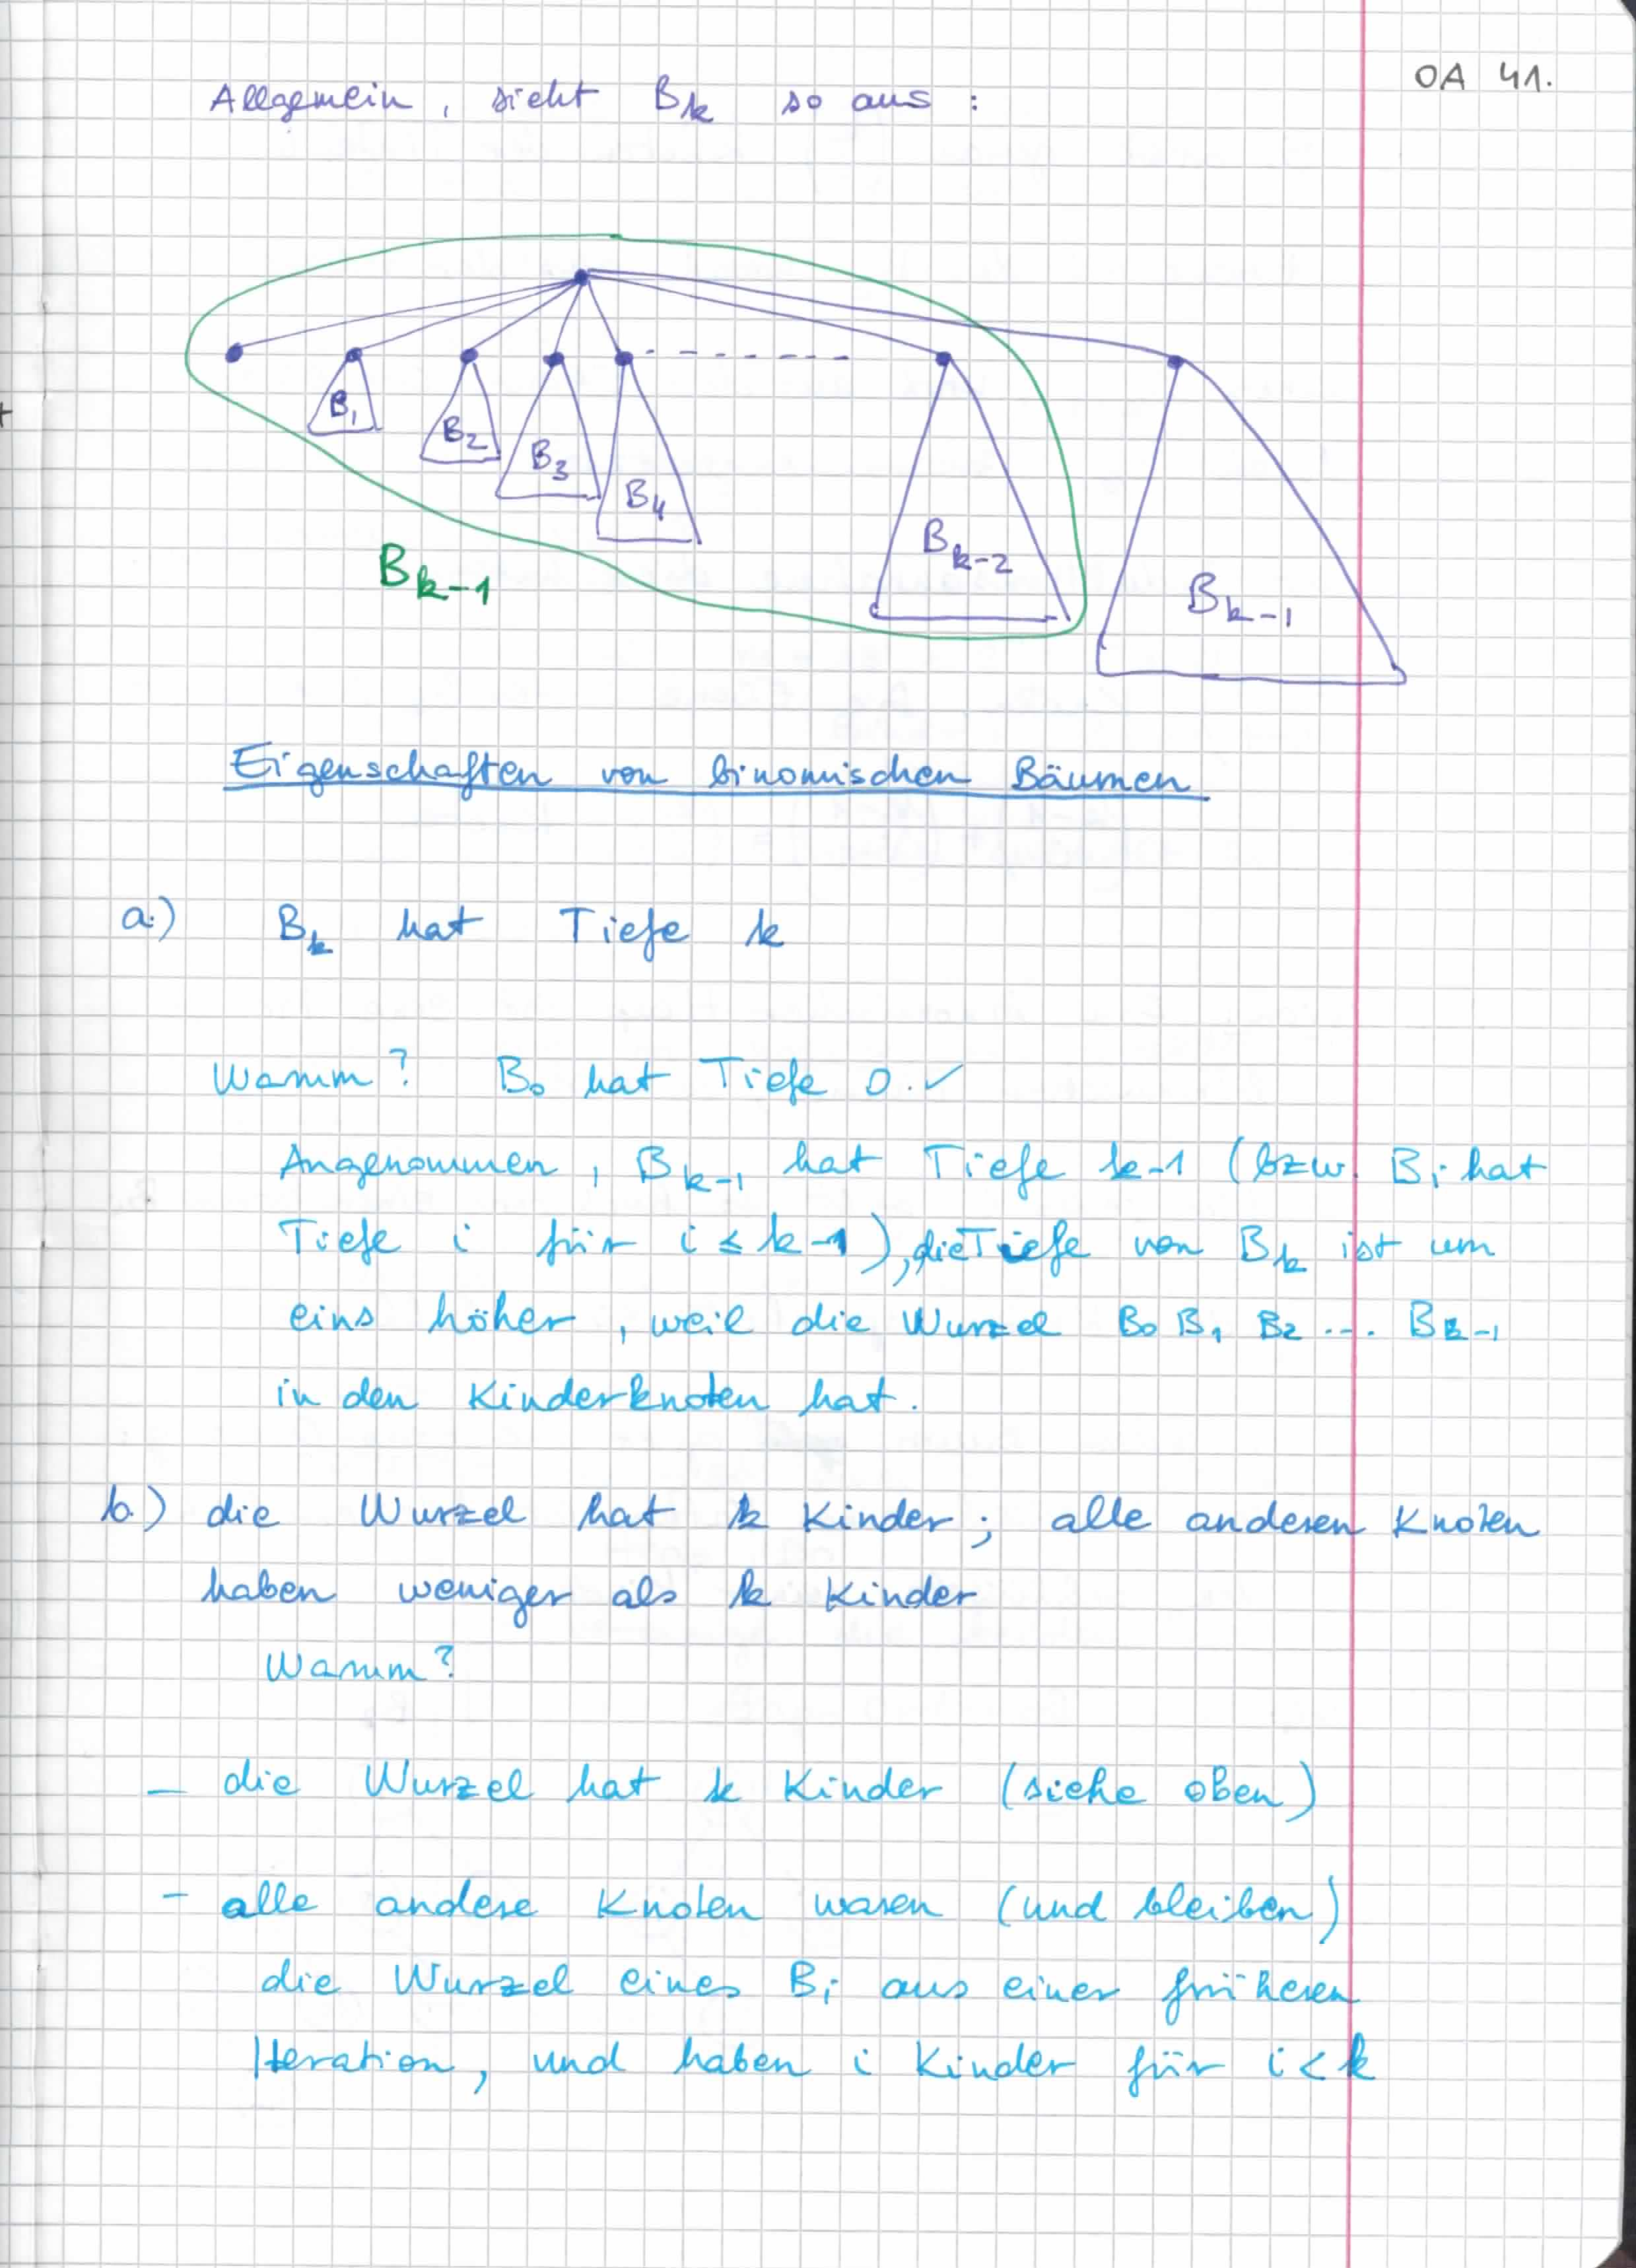 OA 41.
Allgemein, sieht B_k so aus :
B_1
B_2
B_3
B_4
B_{k-2}
B_{k-1}
B_{k-1}
Eigenschaften von binomischen Bäumen
a.) B_k hat Tiefe k
Warum? B_0 hat Tiefe 0. ✓
Angenommen, B_{k-1} hat Tiefe k-1 (bzw. B_i hat
Tiefe i für i ≤ k-1), die Tiefe von B_k ist um
eins höher, weil die Wurzel B_0 B_1 B_2 .... B_{k-1}
in den Kinderknoten hat.
b.) die Wurzel hat k Kinder; alle anderen Knoten
haben weniger als k Kinder
Warum?
- die Wurzel hat k Kinder (siehe oben)
- alle andere Knoten waren (und bleiben)
die Wurzel eines B_i aus einer früheren
Iteration, und haben i Kinder für i < k